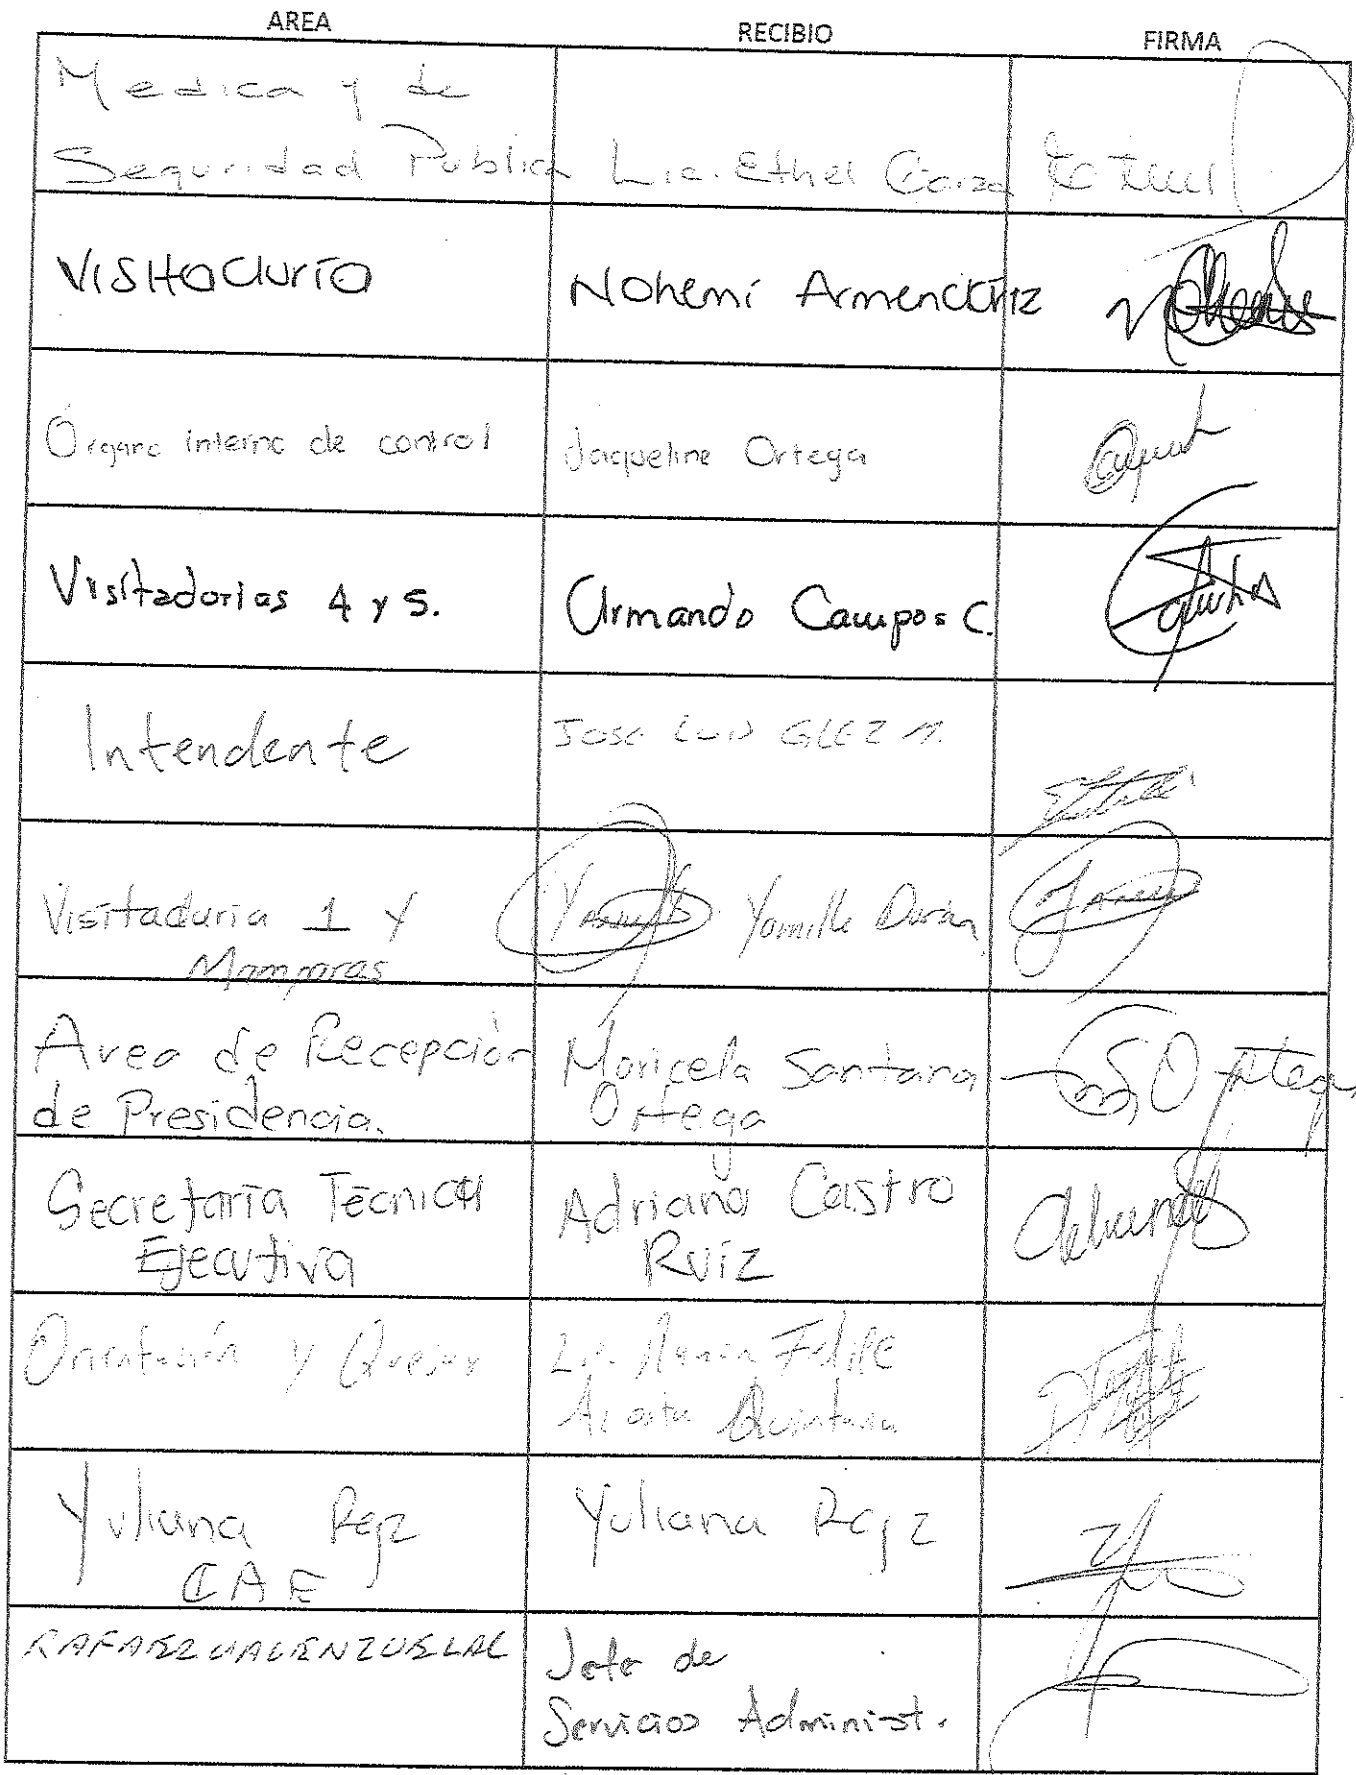 AREA RECIBIO FIRMA
Medica y de
Seguridad Publica Lic. Ethel Garza
VISITADURIA Nohemí Armendáriz
Órgano interno de control Jaqueline Ortega
Visitadorias 4 y 5. Armando Campos C.
Intendente JOSE LUIS GLEZ M.
Visitaduria 1 Y Yamille Durán
Mamparas
Area de Recepción Maricela Santana
de Presidencia. Ortega
Secretaría Técnica Adriana Castro
Ejecutiva Ruiz
Orientación y Quejas Lic. Ramón Felipe
Acosta Quintana
Yuliana Rgz Yuliana Rgz
CAE
RAFAEL VALENZUELA C Jefe de
Servicios Administ.